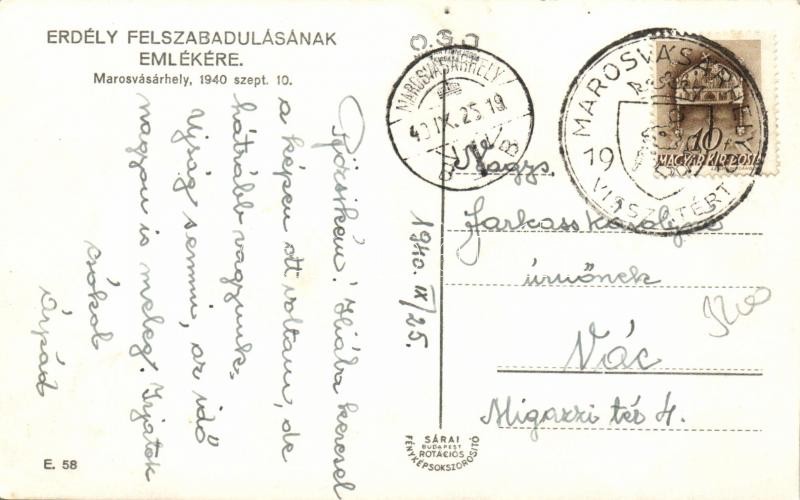 ERDÉLY FELSZABADULÁSÁNAK
EMLÉKÉRE.
Marosvásárhely, 1940 szept. 10.
Györsikém! Hiába keresel
a képen ott voltam, de
hátrább vagyunk.
Ujság semmi, az idő
nagyon is meleg. Irjatok
csókol
Árpád
E. 58
MAROSVÁSÁRHELY
40 IX. 25 19
B
MAROSVÁSÁRHELY
VISSZATÉRT
19
10 f
MAGYAR KIR. POSTA
1940. IX/25.
Nagys.
Farkass Károlyné
úrnőnek
Vác
Migazzi tér 4.
SÁRAI
BUDAPEST
ROTÁCIÓS
FÉNYKÉPSOKSZOROSITÓ